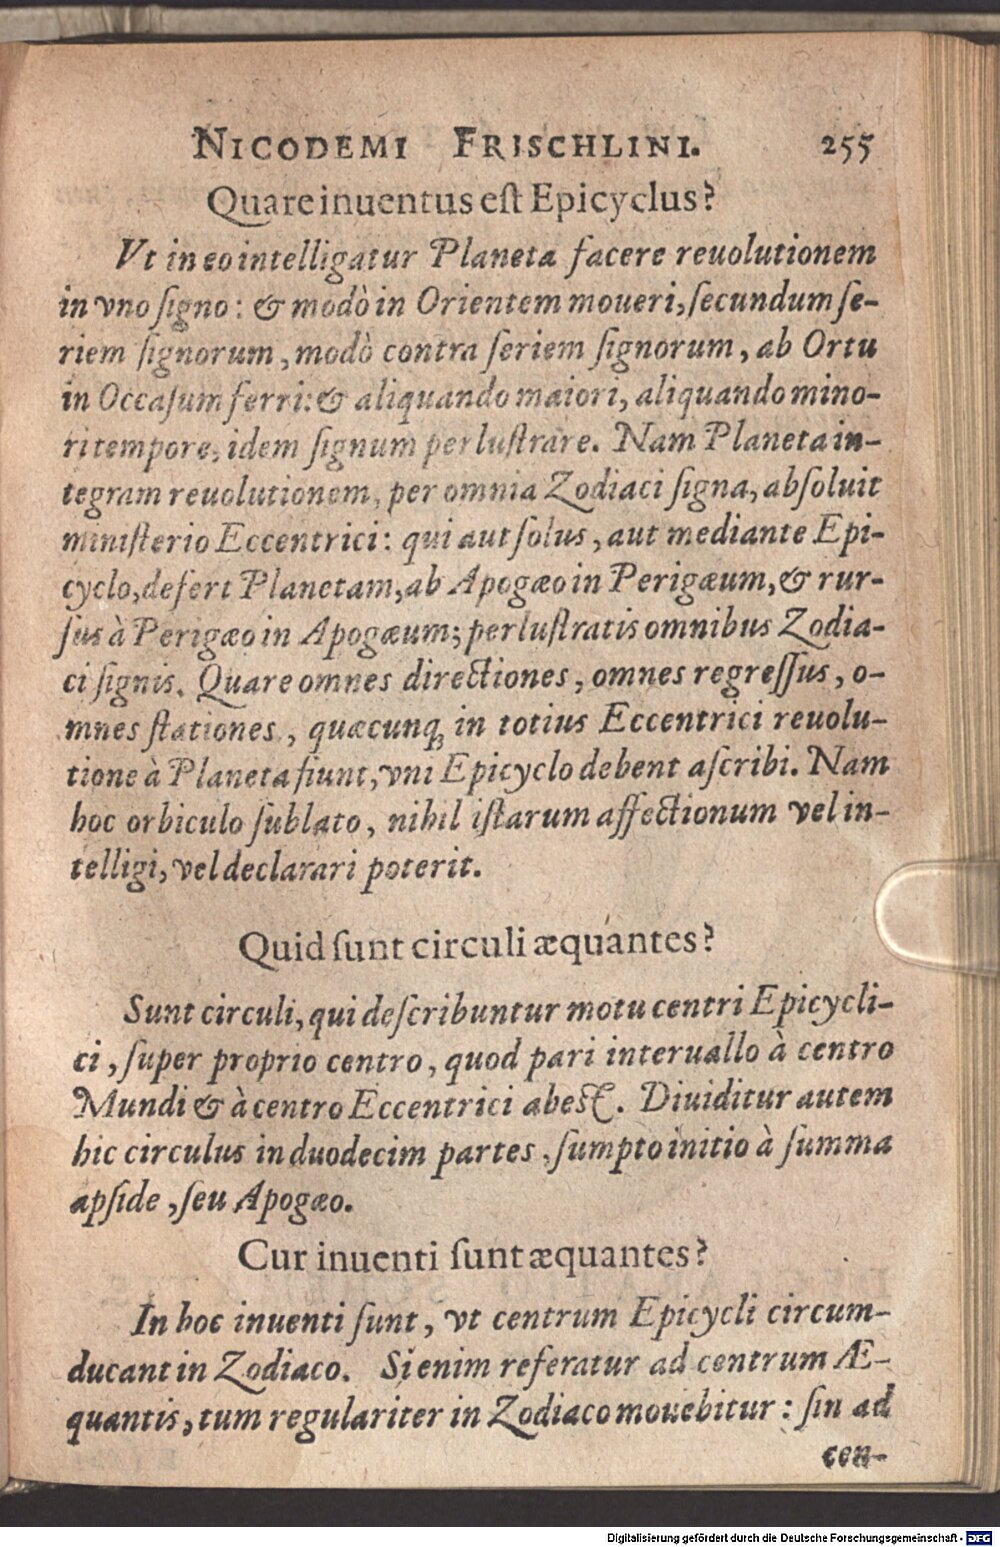 NICODEMI FRISCHLINI. 255
Quare inuentus eſt Epicyclus?
Vt in eo intelligatur Planeta facere reuolutionem
in vno ſigno: & modò in Orientem moueri, ſecundum ſe-
riem ſignorum, modò contra ſeriem ſignorum, ab Ortu
in Occaſum ferri: & aliquando maiori, aliquando mino-
ri tempore, idem ſignum perluſtrare. Nam Planeta in-
tegram reuolutionem, per omnia Zodiaci ſigna, abſoluit
miniſterio Eccentrici: qui aut ſolus, aut mediante Epi-
cyclo, defert Planetam, ab Apogæo in Perigæum, & rur-
ſus à Perigæo in Apogæum; perluſtratis omnibus Zodia-
ci ſignis. Quare omnes directiones, omnes regreſſus, o-
mnes ſtationes, quæcunq; in totius Eccentrici reuolu-
tione à Planeta fiunt, vni Epicyclo debent aſcribi. Nam
hoc orbiculo ſublato, nihil iſtarum affectionum vel in-
telligi, vel declarari poterit.
Quid ſunt circuli æquantes?
Sunt circuli, qui deſcribuntur motu centri Epicycli-
ci, ſuper proprio centro, quod pari interuallo à centro
Mundi & à centro Eccentrici abest. Diuiditur autem
hic circulus in duodecim partes, ſumpto initio à ſumma
apſide, ſeu Apogæo.
Cur inuenti ſunt æquantes?
In hoc inuenti ſunt, vt centrum Epicycli circum-
ducant in Zodiaco. Si enim referatur ad centrum Æ-
quantis, tum regulariter in Zodiaco mouebitur: ſin ad
cen-
Digitalisierung gefördert durch die Deutsche Forschungsgemeinschaft - DFG